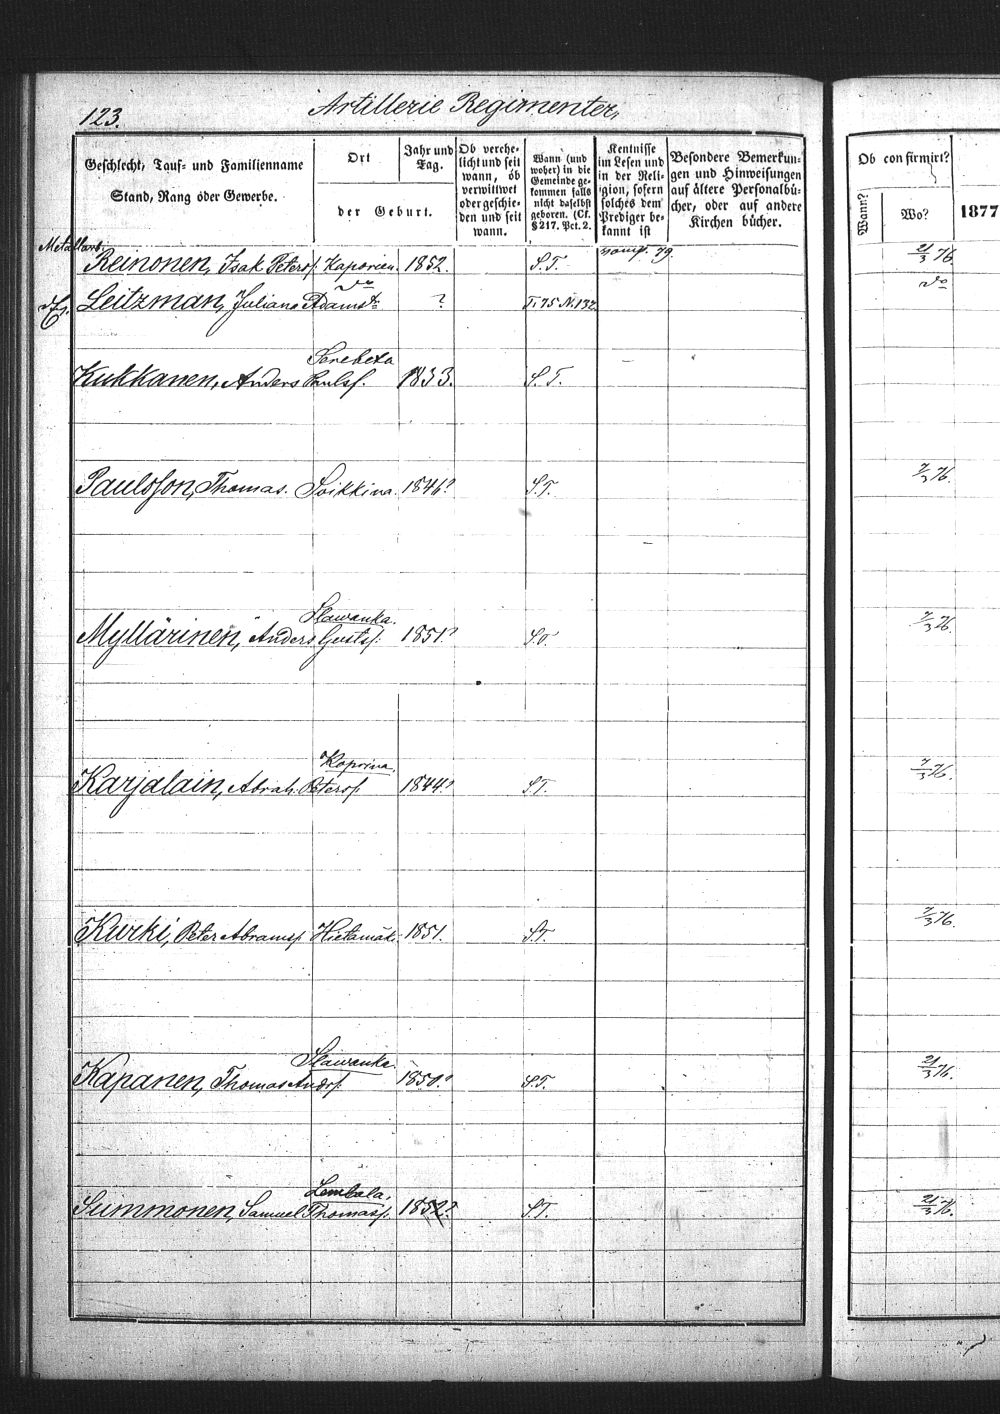 123.
Artillerie Regimenter,
Geschlecht, Tauf- und Familienname
Stand, Rang oder Gewerbe.
Ort
der Geburt.
Jahr und
Tag.
Ob verehe-
licht und seit
wann, ob
verwittwet
oder geschie-
den und seit
wann.
Wann (und
woher) in die
Gemeinde ge-
kommen falls
nicht daselbst
geboren. (Cf.
§ 217. Pct. 2.
Kentnisse
im Lesen und
in der Reli-
gion, sofern
solches dem
Prediger be-
kannt ist
Besondere Bemerkun-
gen und Hinweisungen
auf ältere Personalbü-
cher, oder auf andere
Kirchen bücher.
Ob confirmirt?
Wann?
Wo?
1877
Reinonen, Isak Peterss. Kaporien. 1852. S.T. 79. 21/3 76.
do do
Leitzman, Juliana Adamst: ? T. 75 N. 132.
Kukkanen, Anders Paulss. 1833. S.T.
Paulsson, Thomas. Soikkina. 1846? S.T. 7/3 76.
Slawanka.
Myllärinen, Anders Gustss. 1851? 7/3 76.
Koporina.
Karjalain, Abrah. Peterss. 1844? S.T. 7/3 76.
Kurki, Peter Abramss. Hietamäk: 1851. S.T. 7/3 76.
Slawanka.
Kapanen, Thomas Andrss. 1850? S.T. 21/3 76.
Lembala.
Summonen, Samuel Thomass. 1852? S.T. 21/3 76.